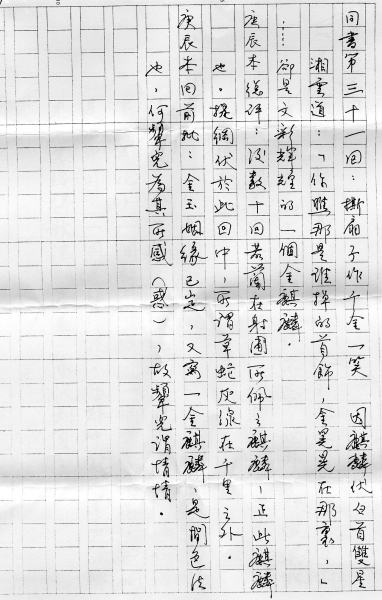 同書第三十一回：撕扇子作千金一笑　因麒麟伏白首雙星
湘雲道：「你瞧那是誰掉的首飾，金晃晃在那裏，」
……卻是文彩輝煌的一個金麒麟。
庚辰本總評：後數十回若蘭在射圃所佩之麒麟，正此麒麟
也。提綱伏於此回中，所謂草蛇灰線在千里之外。
庚辰本回前批：金玉姻緣已定，又寫一金麒麟，是間色法
也，何顰兒為其所感（惑），故顰兒謂情情。